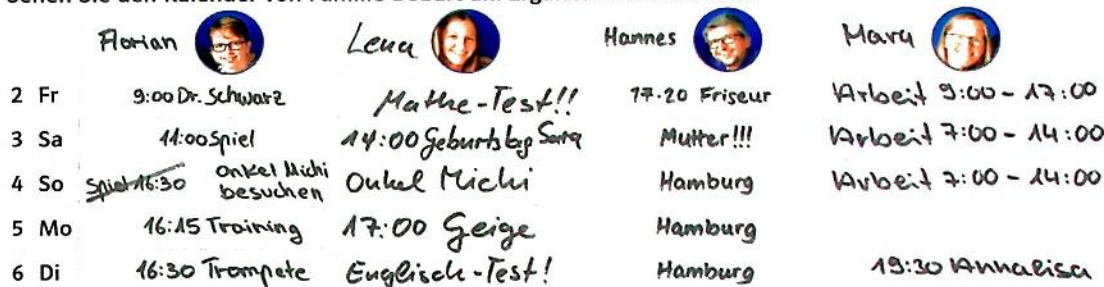 Florian Lena Hannes Mary
2 Fr 9:00 Dr. Schwarz Mathe-Test!! 17.20 Friseur Arbeit 9:00 - 17:00
3 Sa 11:00 Spiel 14:00 Geburtstag Mutter!!! Arbeit 7:00 - 14:00
4 So Spiel 16:30 Onkel Michi besuchen Onkel Michi Hamburg Arbeit 7:00 - 14:00
5 Mo 16:15 Training 17:00 Geige Hamburg
6 Di 16:30 Trompete Englisch-Test! Hamburg 19:30 Annalisa